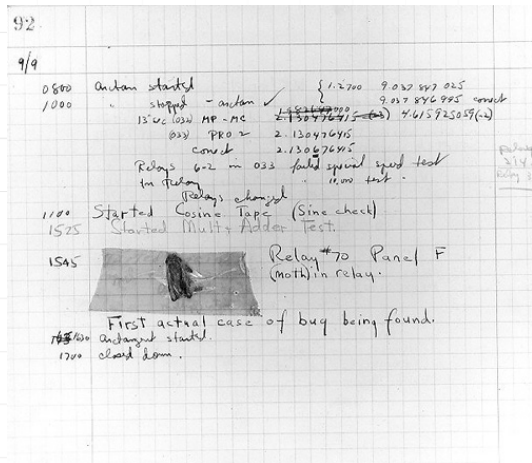 92
9/9
0800 antan started { 1.2700 9.037 847 025
1000 " stopped - antan ✓ 9.037 846 995 correct
13"uc (032) MP-MC 2.130476415 (-3) 4.615925059(-2)
(033) PRO 2 2.130476415
correct 2.130676415
Relays 6-2 in 033 failed special speed test
in Relay " 10,000 test.
Relays changed
1100 Started Cosine Tape (Sine check)
1525 Started Mult + Adder Test.
1545 Relay #70 Panel F
(moth) in relay.
First actual case of bug being found.
1630 antangent started.
1700 closed down.